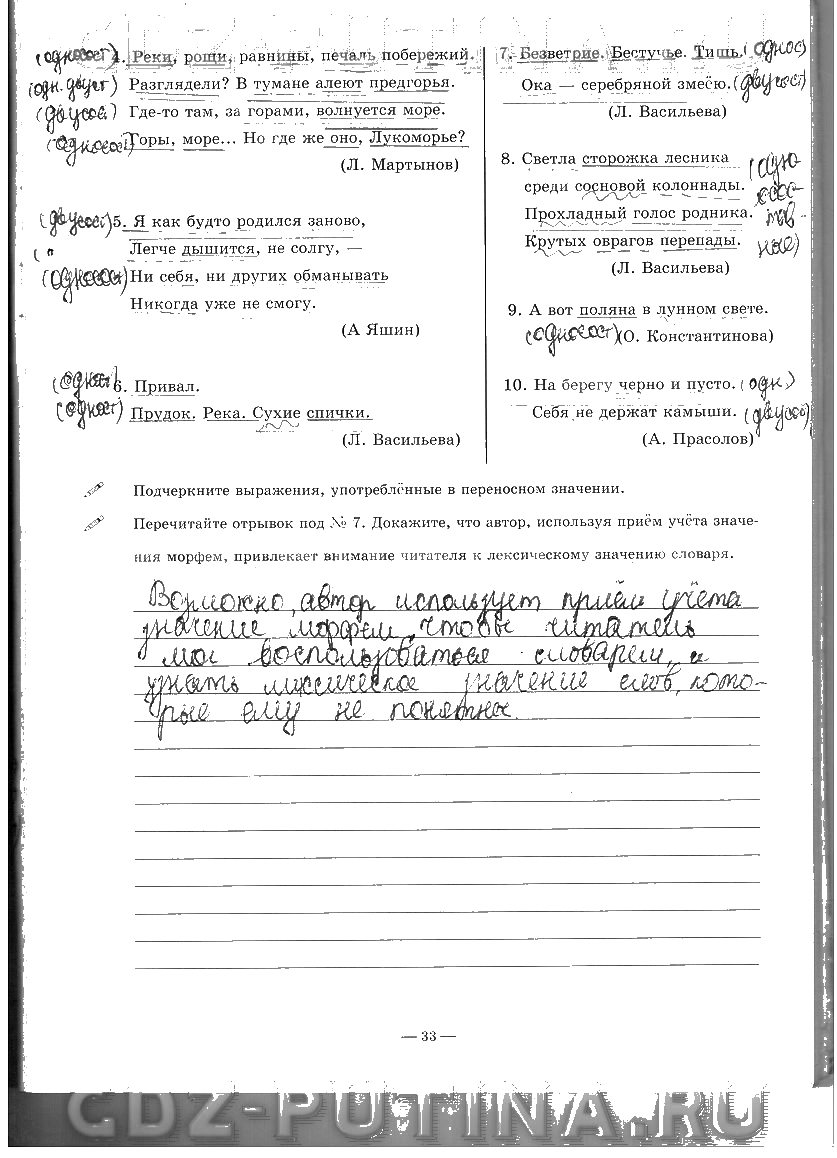 (односост) 4. Реки, рощи, равнины, печаль побережий.
(одн. двусст) Разглядели? В тумане алеют предгорья.
(двусост) Где-то там, за горами, волнуется море.
(односост) Горы, море... Но где же оно, Лукоморье?
(Л. Мартынов)
(двусост) 5. Я как будто родился заново,
( " Легче дышится, не солгу, —
(односост) Ни себя, ни других обманывать
Никогда уже не смогу.
(А Яшин)
(односст) 6. Привал.
(односст) Прудок. Река. Сухие спички.
(Л. Васильева)
7. Безветрие. Бестучье. Тишь. (однос)
Ока — серебряной змеёю. (двусост)
(Л. Васильева)
8. Светла сторожка лесника
среди сосновой колоннады.
Прохладный голос родника.
Крутых оврагов перепады.
(Л. Васильева)
9. А вот поляна в лунном свете.
(односост) (О. Константинова)
10. На берегу черно и пусто. (одн.)
Себя не держат камыши. (двусост)
(А. Прасолов)
Подчеркните выражения, употреблённые в переносном значении.
Перечитайте отрывок под № 7. Докажите, что автор, используя приём учёта значе-
ния морфем, привлекает внимание читателя к лексическому значению словаря.
Возможно, автор использует приём учёта
значение морфем, чтобы читатель
мог воспользоваться словарем, и
узнать лиссическое значение слов, кото-
рые ему не понятны.
— 33 —
GDZ-PUTINA.RU